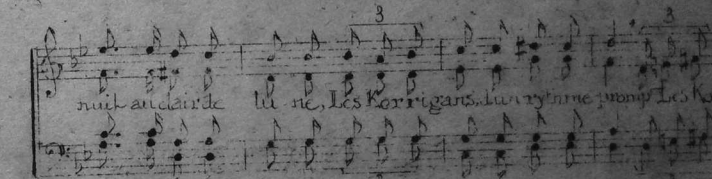 3 3
nuit au clair de lu ne, Les Kerrigans, d'un rythme prompt Les K